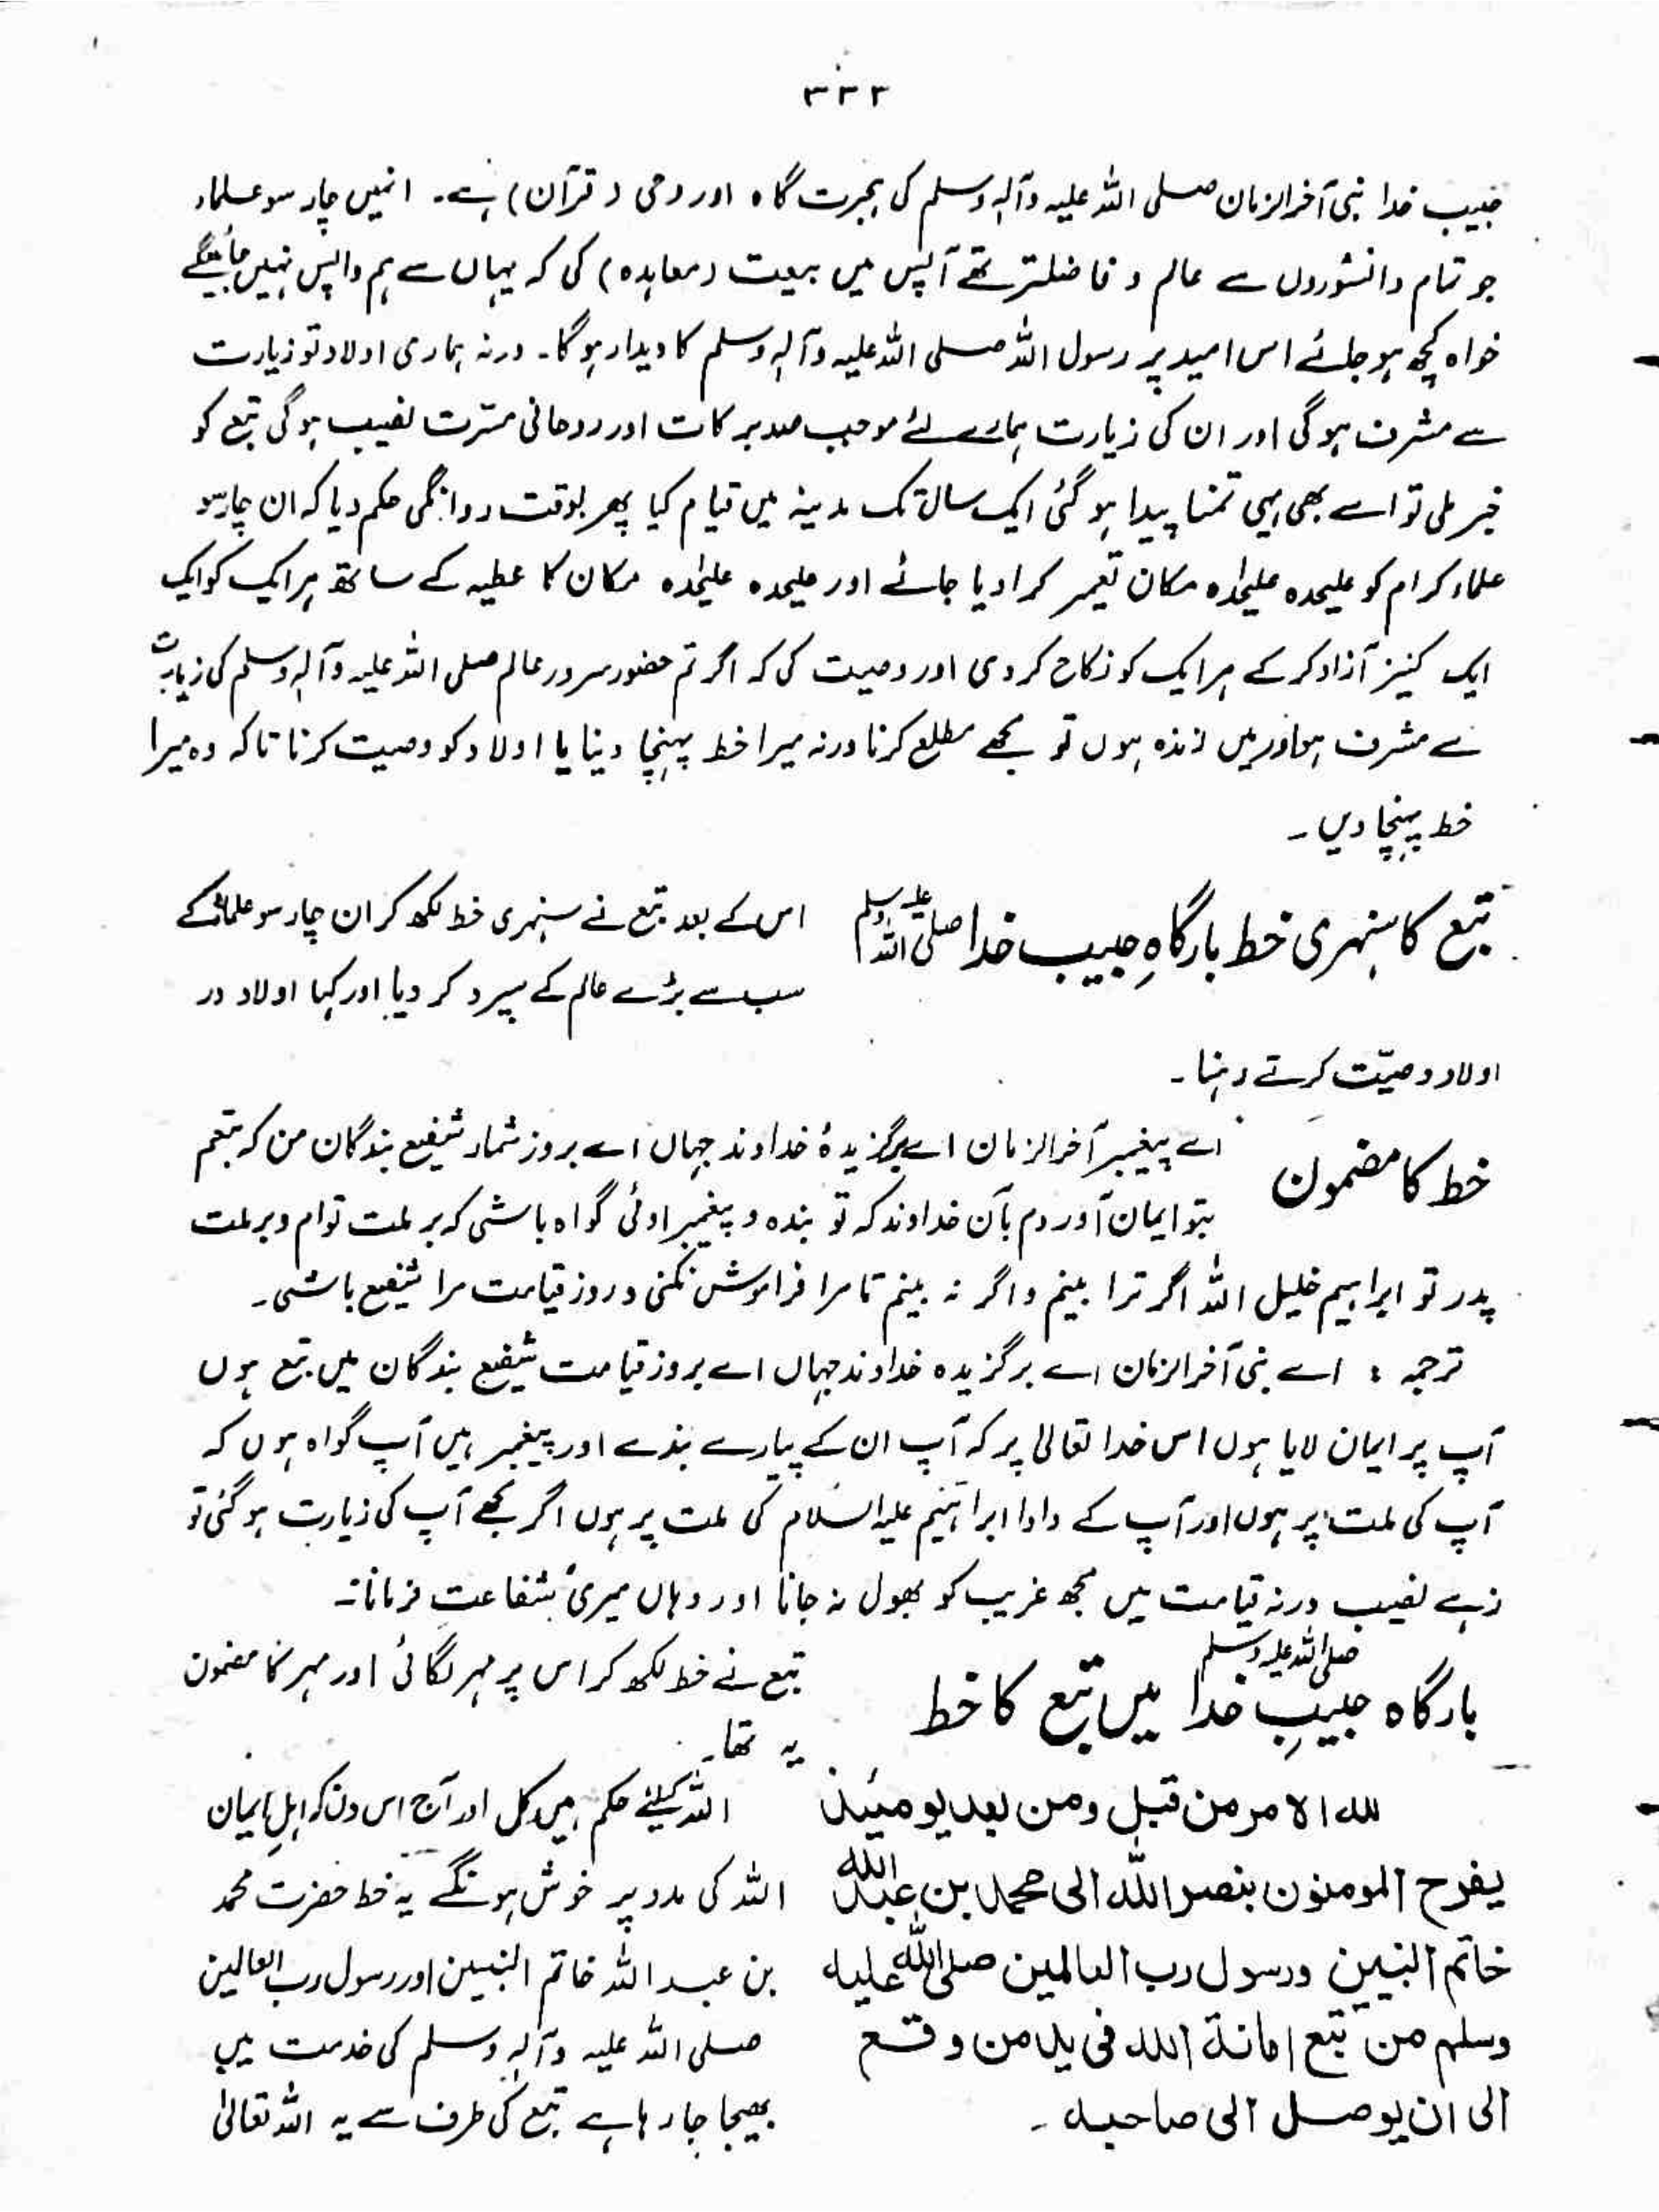 ۳۳۲
حبیب خدا نبی آخرالزمان صلی اللہ علیہ وآلہٖ وسلم کی ہجرت گاہ اور وحی (قرآن) ہے۔ انہیں چار سو علماء
جو تمام دانشوروں سے عالم و فاضلتر تھے آپس میں بیعت (معاہدہ) کی کہ یہاں سے ہم واپس نہیں جائینگے
خواہ کچھ ہو جائے اس امید پر رسول اللہ صلی اللہ علیہ وآلہٖ وسلم کا دیدار ہو گا۔ ورنہ ہماری اولاد تو زیارت
سے مشرف ہو گی اور ان کی زیارت ہمارے لئے موجب صد برکات اور روحانی مسّرت نصیب ہو گی تبع کو
خبر ملی تو اسے بھی یہی تمنا پیدا ہو گئی ایک سال تک مدینہ میں قیام کیا پھر بوقت روانگی حکم دیا کہ ان چار سو
علماء کرام کو علیحدہ علیحدہ مکان تعمیر کرا دیا جائے اور علیحدہ علیحدہ مکان کا عطیہ کے ساتھ ہر ایک کو ایک
ایک کنیز آزاد کر کے ہر ایک کو نکاح کر دی اور وصیت کی کہ اگر تم حضور سرور عالم صلی اللہ علیہ وآلہٖ وسلم کی زیارت
سے مشرف ہو اور میں زندہ ہوں تو مجھے مطلع کرنا ورنہ میرا خط پہنچا دینا یا اولاد کو وصیت کرنا تاکہ وہ میرا
خط پہنچا دیں۔
تبع کا سنہری خط بارگاہِ حبیب خدا صلی اللہ علیہ وسلم
اس کے بعد تبع نے سنہری خط لکھ کر ان چار سو علماء کے
سب سے بڑے عالم کے سپرد کر دیا اور کہا اولاد در
اولاد وصیّت کرتے رہنا۔
خط کا مضمون
اے پیغمبر آخرالزمان اے برگزیدۂ خداوند جہاں اے بروز شمار شفیع بندگان من کہ تبعم
بتو ایمان آوردم بآن خداوند کہ تو بندہ و پیغمبر اوئی گواہ باشی کہ بر ملت توام و بر ملت
پدر تو ابراہیم خلیل اللہ اگر ترا بینم و اگر نہ بینم تا مرا فراموش نکنی و روز قیامت مرا شفیع باشی۔
ترجمہ : اے نبی آخرالزمان اے برگزیدہ خداوند جہاں اے بروز قیامت شفیع بندگان میں تبع ہوں
آپ پر ایمان لایا ہوں اس خدا تعالیٰ پر کہ آپ ان کے پیارے بندے اور پیغمبر ہیں آپ گواہ ہوں کہ
آپ کی ملت پر ہوں اور آپ کے دادا ابراہیم علیہ السلام کی ملت پر ہوں اگر مجھے آپ کی زیارت ہو گئی تو
زہے نصیب ورنہ قیامت میں مجھ غریب کو بھول نہ جانا اور وہاں میری شفاعت فرمانا۔
بارگاہ حبیبِ خدا صلی اللہ علیہ وسلم میں تبع کا خط
تبع نے خط لکھ کر اس پر مہر لگائی اور مہر کا مضمون
یہ تھا۔
لله الامر من قبل ومن بعد يومئذ
يفرح المومنون بنصر الله الى محمد بن عبد الله
خاتم النبين ورسول رب العالمين صلى الله عليه
وسلم من تبع امانة الله فى يد من وقع
الى ان يوصل الى صاحبه۔
اللہ کیلئے حکم ہیں کل اور آج اس دن کہ اہلِ ایمان
اللہ کی مدد پر خوش ہونگے یہ خط حضرت محمد
بن عبد اللہ خاتم النبیین اور رسول رب العالمین
صلی اللہ علیہ وآلہٖ وسلم کی خدمت میں
بھیجا جا رہا ہے تبع کی طرف سے یہ اللہ تعالیٰ